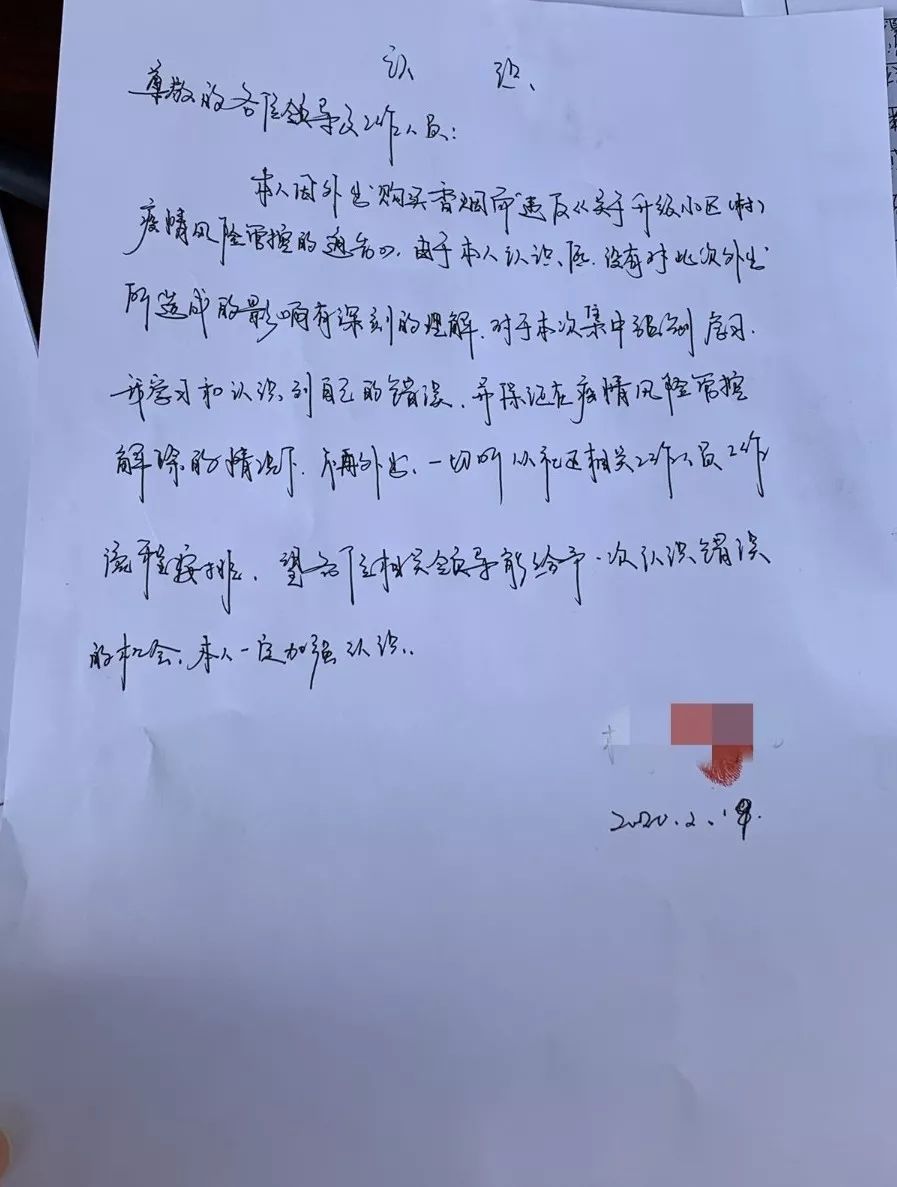 认 识、
尊敬的各位领导及工作人员：
本人因外出购买香烟而违反《关于升级小区（村）
疫情风险管控的通告》，由于本人认识、没有对此次外出
所造成的影响有深刻的理解．对于本次集中
学习和认识到自己的错误、并保证在疫情风险管控
解除的情况下．不再外出、一切听从社区相关工作人员工作
流程安排．望各位相关领导能给予一次认识错误
的机会、本人一定加强认识．．
2020.2.19.